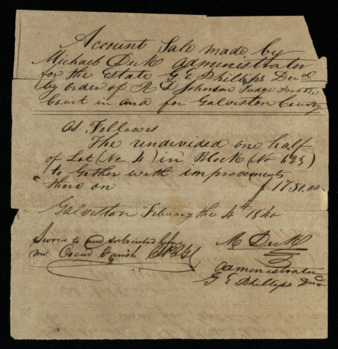 Account Sale made by
Michael Duke administrator
for the Estate G E Phillips Decd
by order of R D Johnson Judge Probate
Court in and for Galveston County
As Follows
The undivided one half
of Lot (No 4) in Block (No 623)
to Gather with improvements
there on
Galveston February the 4th 1840
Sworn to and subscribed before
me Oscar Farish
M Duke
administrator
G E Phillips Decd